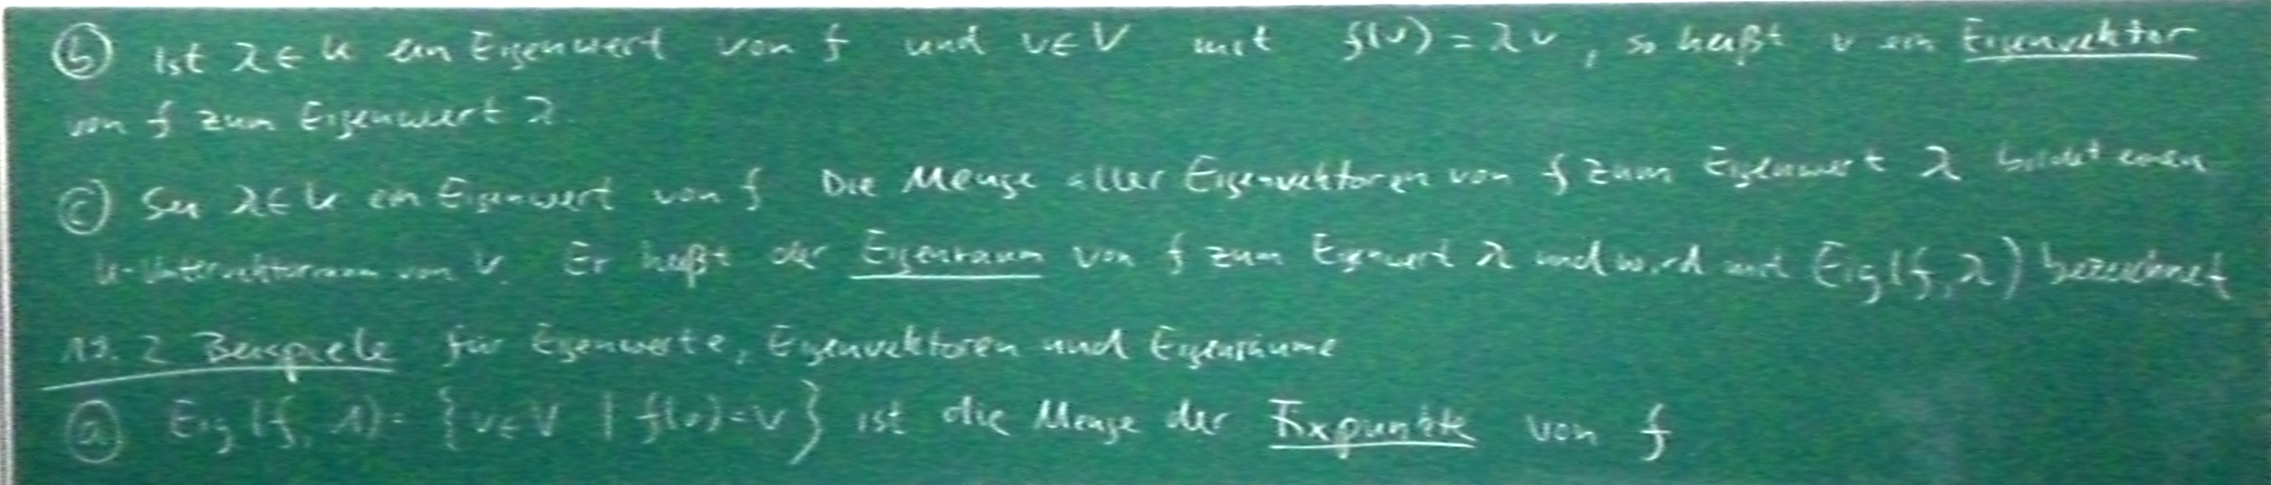 (b) Ist λ ∈ K ein Eigenwert von f und v ∈ V mit f(v) = λv, so heißt v ein Eigenvektor
von f zum Eigenwert λ
(c) Sei λ ∈ K ein Eigenwert von f Die Menge aller Eigenvektoren von f zum Eigenwert λ bildet einen
K-Untervektorraum von V. Er heißt der Eigenraum von f zum Eigenwert λ und wird mit Eig(f, λ) bezeichnet
19.2 Beispiele für Eigenwerte, Eigenvektoren und Eigenräume
(a) Eig(f, 1) = {v ∈ V | f(v) = v} ist die Menge der Fixpunkte von f